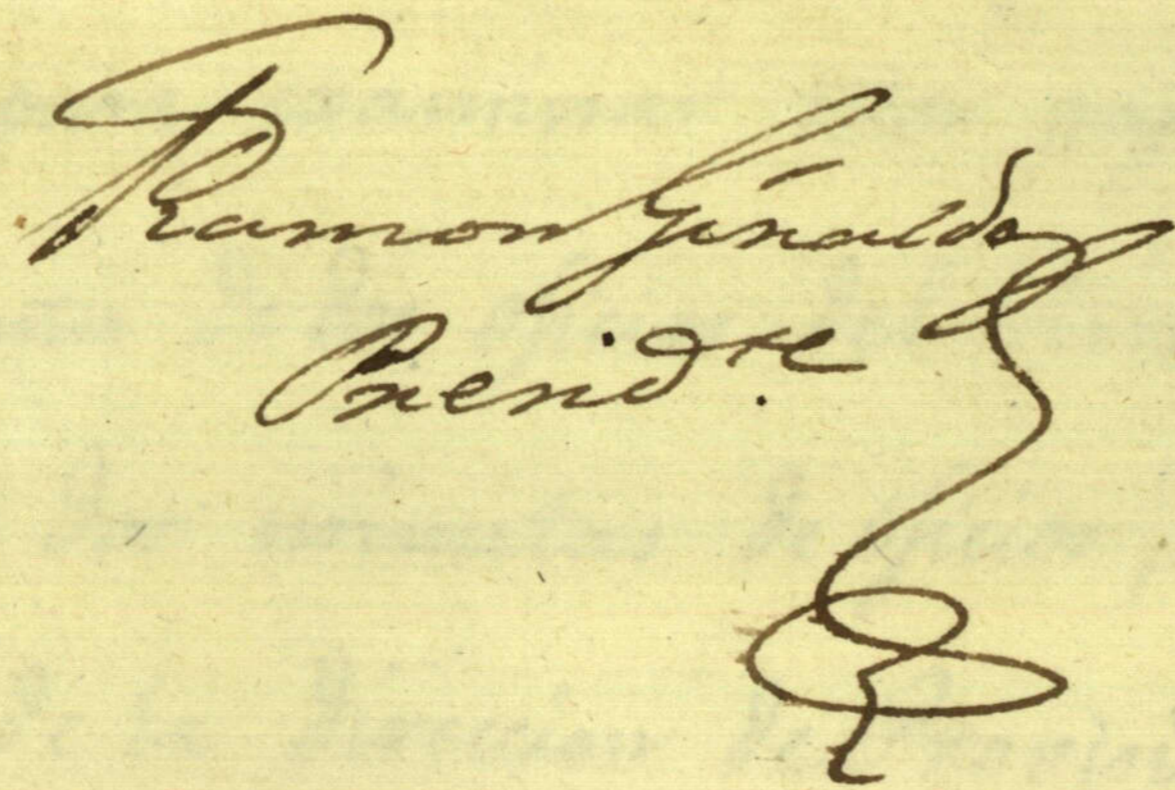 Ramon Giraldez
Presid.te